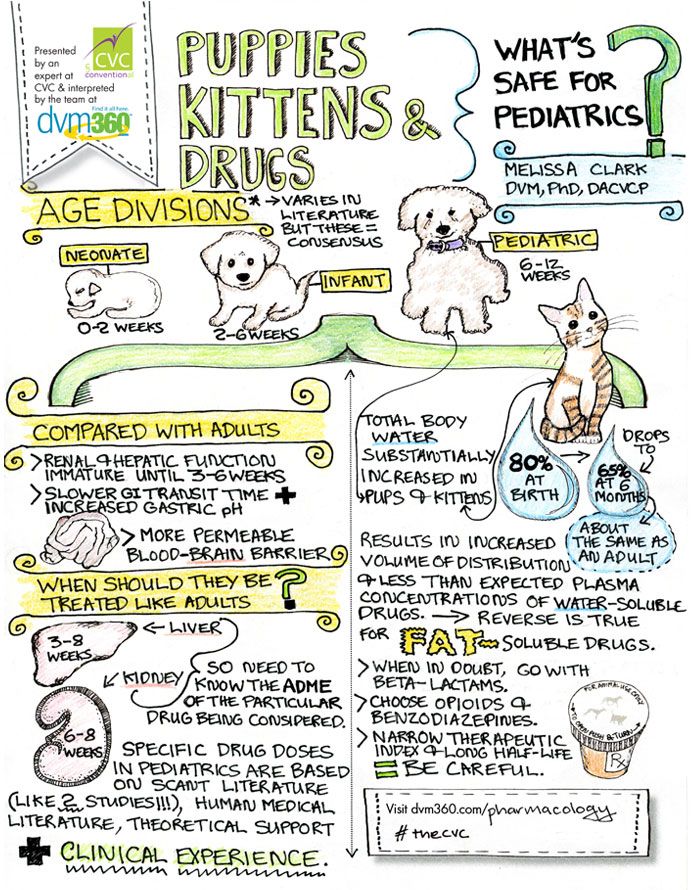 Presented
by an
expert at
CVC & interpreted
by the team at
CVC
convention
Find it all here.
dvm360
PUPPIES
KITTENS &
DRUGS
WHAT'S
SAFE FOR
PEDIATRICS?
MELISSA CLARK
DVM, PhD, DACVCP
AGE DIVISIONS*
→ VARIES IN
LITERATURE
BUT THESE =
CONSENSUS
NEONATE
0-2 WEEKS
INFANT
2-6 WEEKS
PEDIATRIC
6-12
WEEKS
COMPARED WITH ADULTS
> RENAL & HEPATIC FUNCTION
IMMATURE UNTIL 3-6 WEEKS
> SLOWER GI TRANSIT TIME +
INCREASED GASTRIC pH
> MORE PERMEABLE
BLOOD-BRAIN BARRIER
WHEN SHOULD THEY BE
TREATED LIKE ADULTS?
3-8
WEEKS
← LIVER
KIDNEY
6-8
WEEKS
SO NEED TO
KNOW THE ADME
OF THE PARTICULAR
DRUG BEING CONSIDERED.
SPECIFIC DRUG DOSES
IN PEDIATRICS ARE BASED
ON SCANT LITERATURE
(LIKE 2 STUDIES!!!), HUMAN MEDICAL
LITERATURE, THEORETICAL SUPPORT
+ CLINICAL EXPERIENCE.
TOTAL BODY
WATER
SUBSTANTIALLY
INCREASED IN
PUPS & KITTENS
80%
AT
BIRTH
DROPS
TO
65%
AT 6
MONTHS
ABOUT
THE SAME AS
AN ADULT
RESULTS IN INCREASED
VOLUME OF DISTRIBUTION
& LESS THAN EXPECTED PLASMA
CONCENTRATIONS OF WATER-SOLUBLE
DRUGS. → REVERSE IS TRUE
FOR FAT-SOLUBLE DRUGS.
> WHEN IN DOUBT, GO WITH
BETA-LACTAMS.
> CHOOSE OPIOIDS &
BENZODIAZEPINES.
> NARROW THERAPEUTIC
INDEX & LONG HALF-LIFE
= BE CAREFUL.
FOR ANIMAL USE ONLY
TO OPEN PUSH & RETURN
Rx
Visit dvm360.com/pharmacology
#thecvc